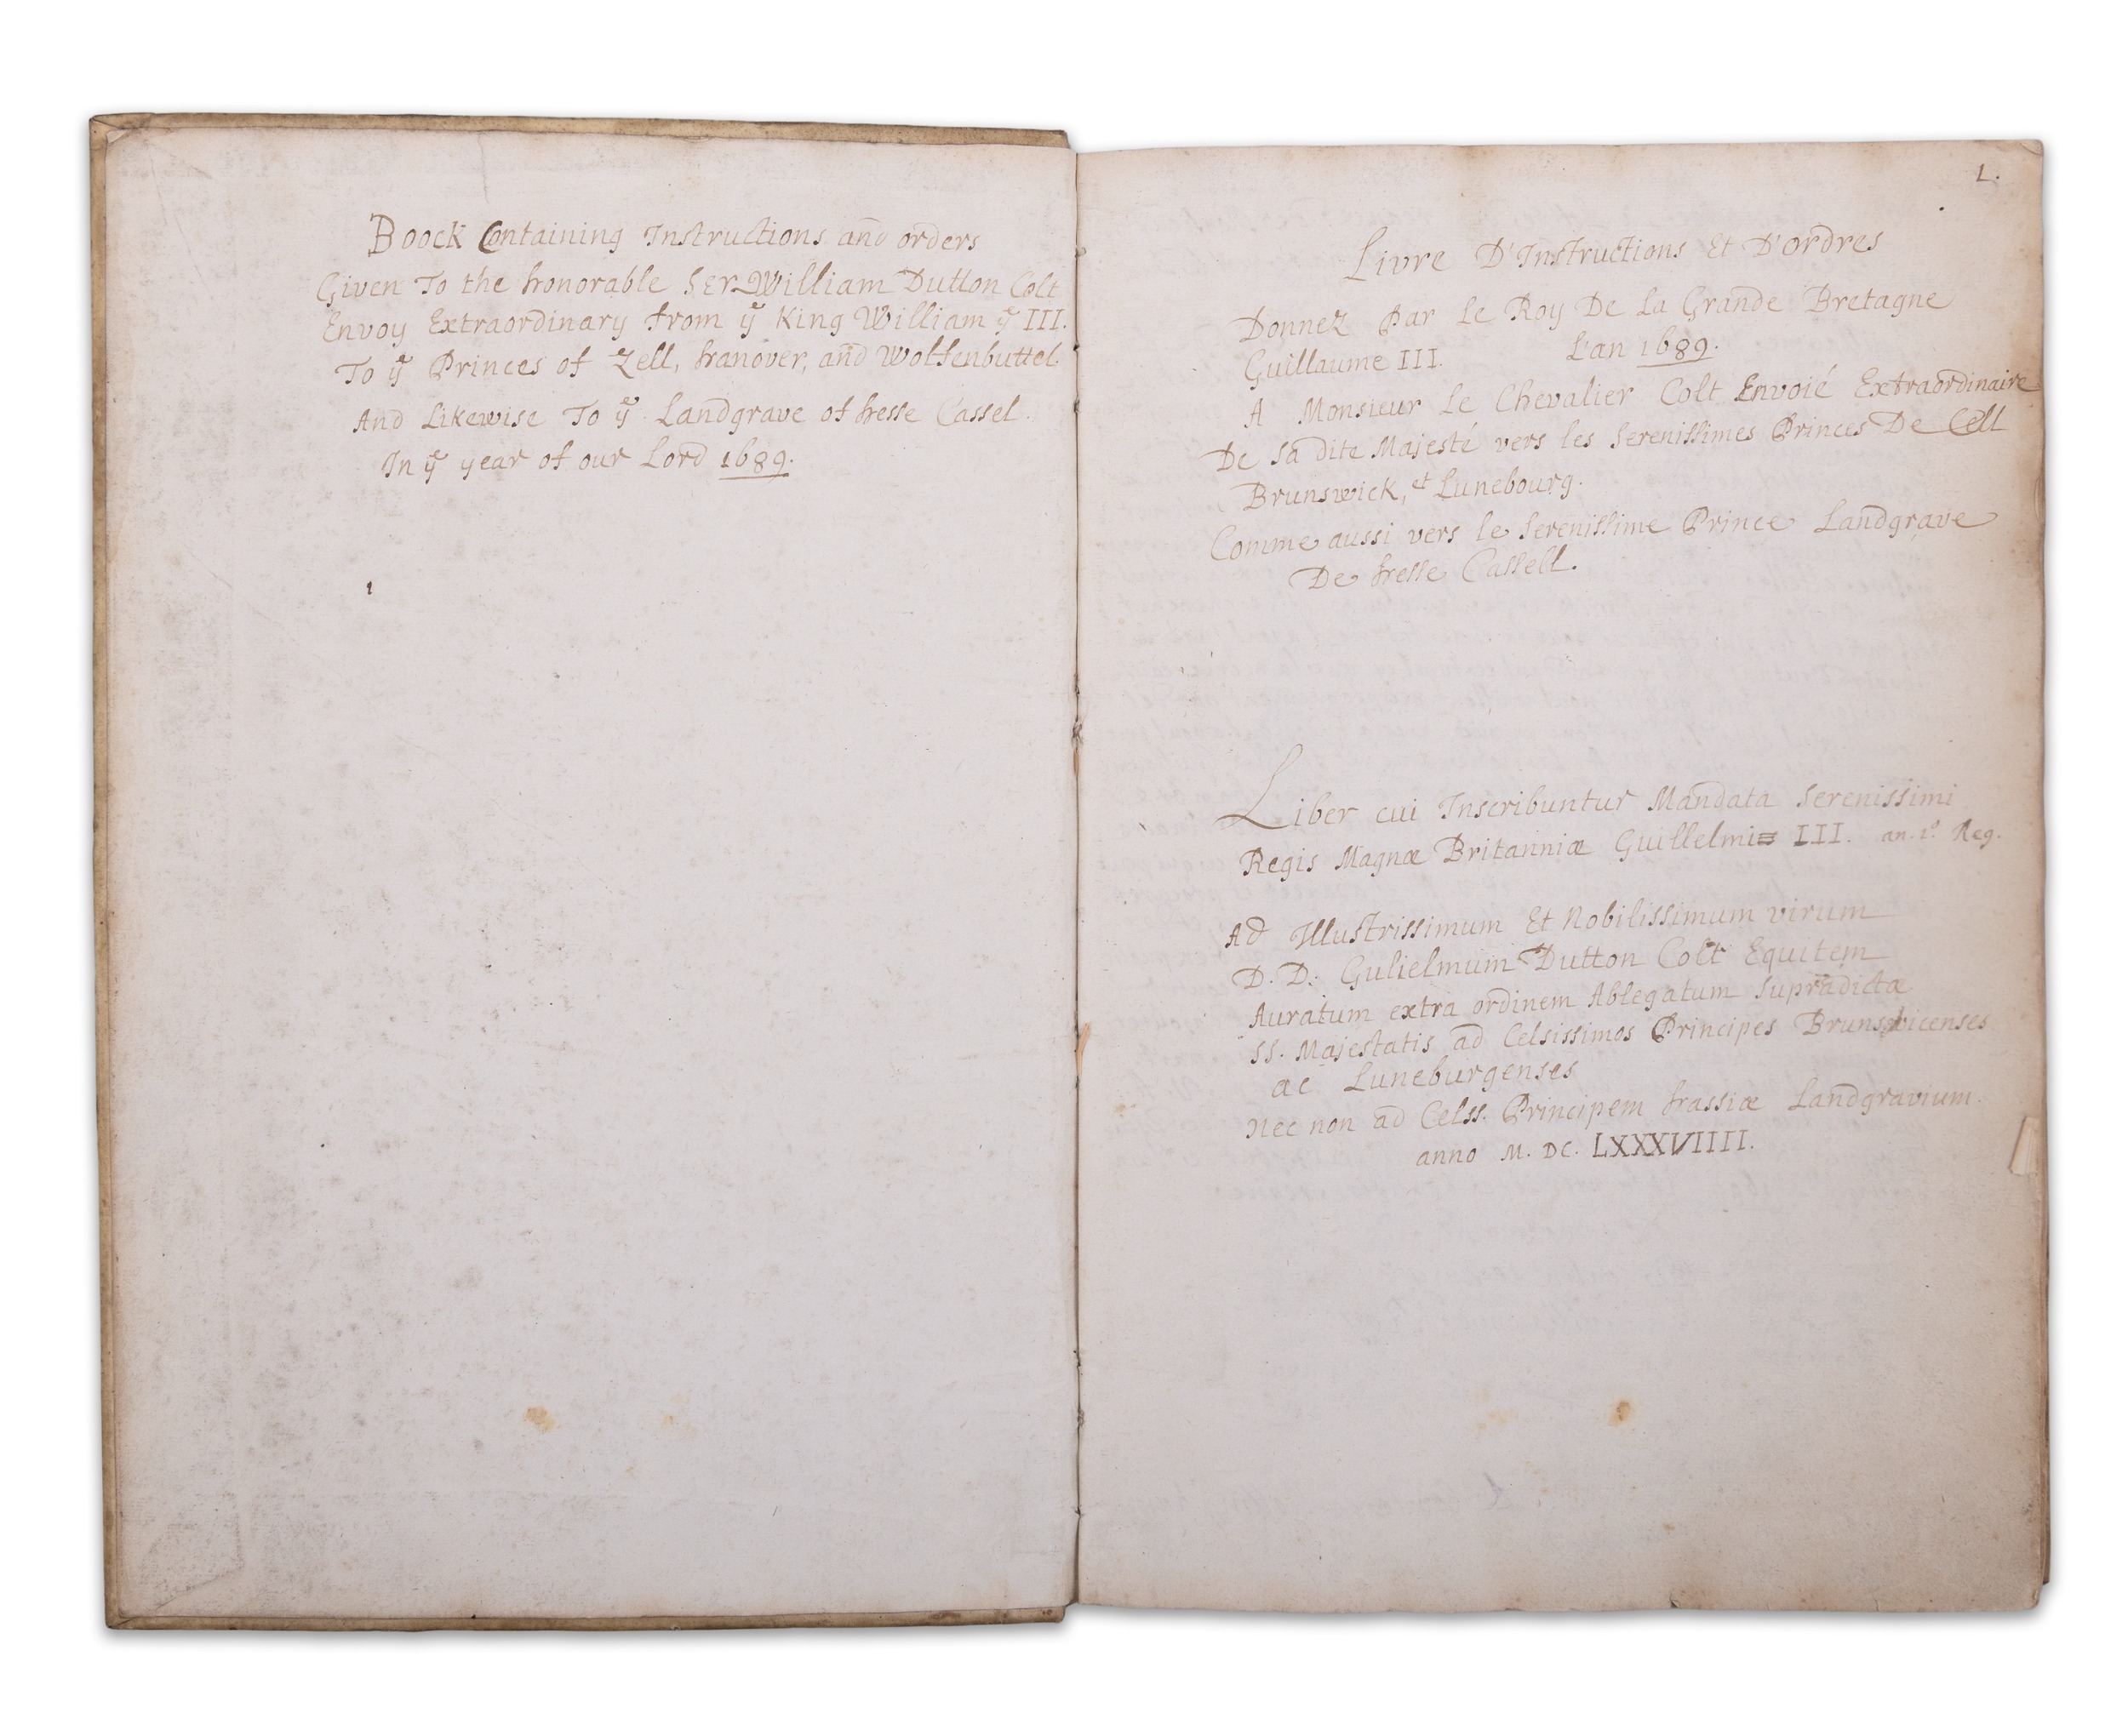 Boock Containing Instructions and orders
Given To the honorable Ser William Dutton Colt
Envoy Extraordinary from yᵉ King William yᵉ III.
To yᵉ Princes of Zell, hanover, and Wolfenbuttel.
And Likewise To yᵉ Landgrave of hesse Cassel.
In yᵉ year of our Lord 1689.
1.
Livre D'Instructions Et D'ordres
Donnez Par Le Roy De La Grande Bretagne
Guillaume III. L'an 1689.
A Monsieur Le Chevalier Colt Envoié Extraordinaire
De sa dite Majesté vers les Serenissimes Princes De Cell
Brunswick, et Lunebourg.
Comme aussi vers le Serenissime Prince Landgrave
De hesse Cassell.
Liber cui Inscribuntur Mandata Serenissimi
Regis Magnæ Britanniæ Guillelmi III. an. 1º Reg.
Ad Illustrissimum Et Nobilissimum virum
D. D: Gulielmum Dutton Colt Equitem
Auratum extra ordinem Ablegatum Supradictæ
SS. Majestatis ad Celsissimos Principes Brunsvicenses
ac Luneburgenses
Nec non ad Celss. Principem hassiæ Landgravium.
anno M. DC. LXXXVIIII.